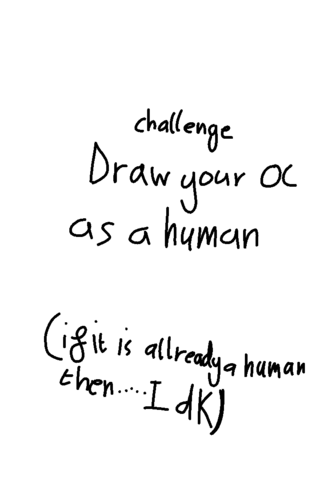 challenge
Draw your OC
as a human
(if it is allready a human
then.....I dK)